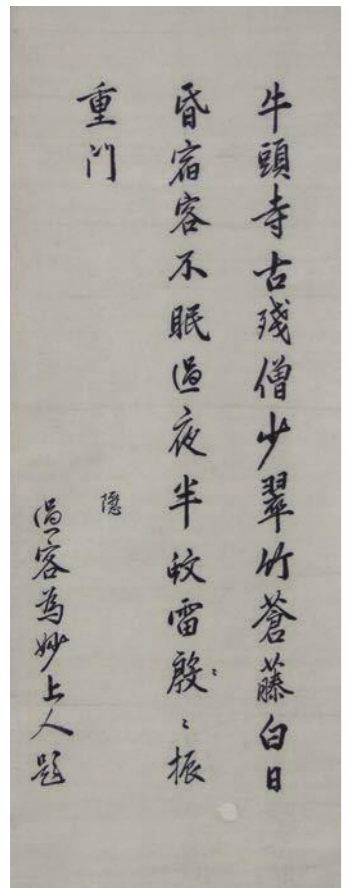 牛頭寺古殘僧少翠竹蒼藤白日
昏宿客不眠過夜半蚊雷殷〻振
重門
隱
過客為妙上人題